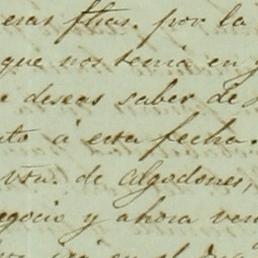 eras ftias. por la
que nos tenia en
deseas saber de
to á esta fecha.
vta. de Algodones,
egocio y ahora ven